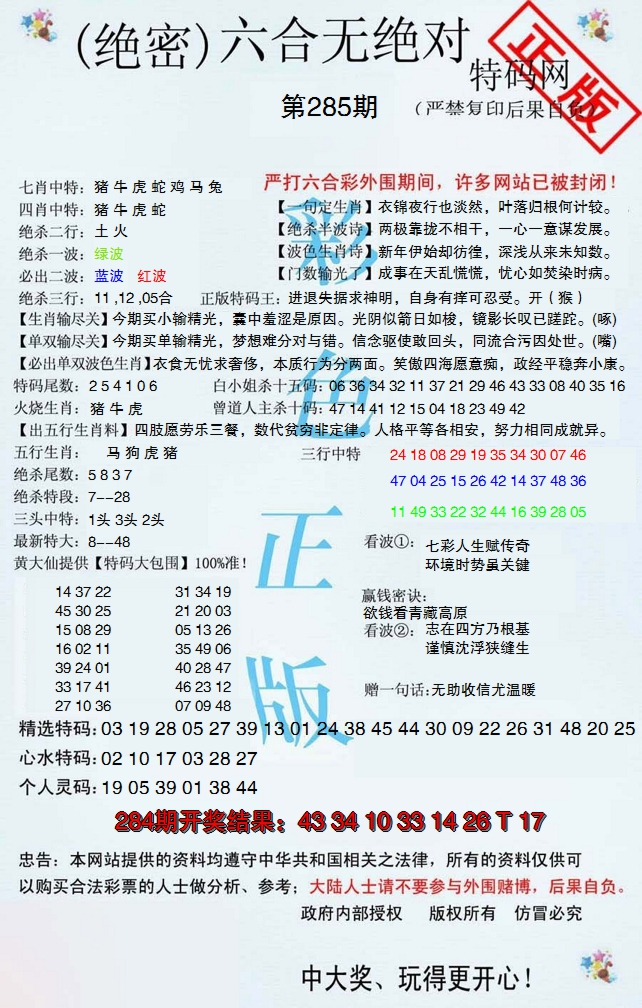 (绝密)六合无绝对
特码网
正版
第285期
（严禁复印后果自负）
七肖中特：猪 牛 虎 蛇 鸡 马 兔
严打六合彩外围期间，许多网站已被封闭！
四肖中特：猪 牛 虎 蛇
【一句定生肖】衣锦夜行也淡然，叶落归根何计较。
绝杀二行：土 火
【绝杀半波诗】两极靠拢不相干，一心一意谋发展。
绝杀一波：绿波
【波色生肖诗】新年伊始却彷徨，深浅从来未知数。
必出二波：蓝波 红波
【门数输光了】成事在天乱慌慌，忧心如焚染时病。
绝杀三行：11 ,12 ,05合
正版特码王：进退失据求神明，自身有痒可忍受。开（猴）
【生肖输尽关】今期买小输精光，囊中羞涩是原因。光阴似箭日如梭，镜影长叹已蹉跎。(啄)
【单双输尽关】今期买单输精光，梦想难分对与错。信念驱使敢回头，同流合污因处世。(嘴)
【必出单双波色生肖】衣食无忧求奢侈，本质行为分两面。笑傲四海愿意痴，政经平稳奔小康。
特码尾数：2 5 4 1 0 6
白小姐杀十五码：06 36 34 32 11 37 21 29 46 43 33 08 40 35 16
火烧生肖：猪 牛 虎
曾道人主杀十码：47 14 41 12 15 04 18 23 49 42
【出五行生肖料】四肢愿劳乐三餐，数代贫穷非定律。人格平等各相安，努力相同成就异。
五行生肖：马 狗 虎 猪
三行中特
24 18 08 29 19 35 34 30 07 46
绝杀尾数：5 8 3 7
47 04 25 15 26 42 14 37 48 36
绝杀特段：7--28
11 49 33 22 32 44 16 39 28 05
三头中特：1头 3头 2头
最新特大：8--48
看波①：七彩人生赋传奇
环境时势虽关键
黄大仙提供【特码大包围】100%准！
14 37 22 31 34 19
赢钱密诀：
45 30 25 21 20 03
欲钱看青藏高原
15 08 29 05 13 26
看波②：志在四方乃根基
16 02 11 35 49 06
谨慎沈浮狭缝生
39 24 01 40 28 47
33 17 41 46 23 12
赠一句话:无助收信尤温暖
27 10 36 07 09 48
彩色正版
精选特码：03 19 28 05 27 39 13 01 24 38 45 44 30 09 22 26 31 48 20 25
心水特码：02 10 17 03 28 27
个人灵码：19 05 39 01 38 44
284期开奖结果：43 34 10 33 14 26 T 17
忠告：本网站提供的资料均遵守中华共和国相关之法律，所有的资料仅供可
以购买合法彩票的人士做分析、参考；大陆人士请不要参与外围赌博，后果自负。
政府内部授权 版权所有 仿冒必究
中大奖、玩得更开心！